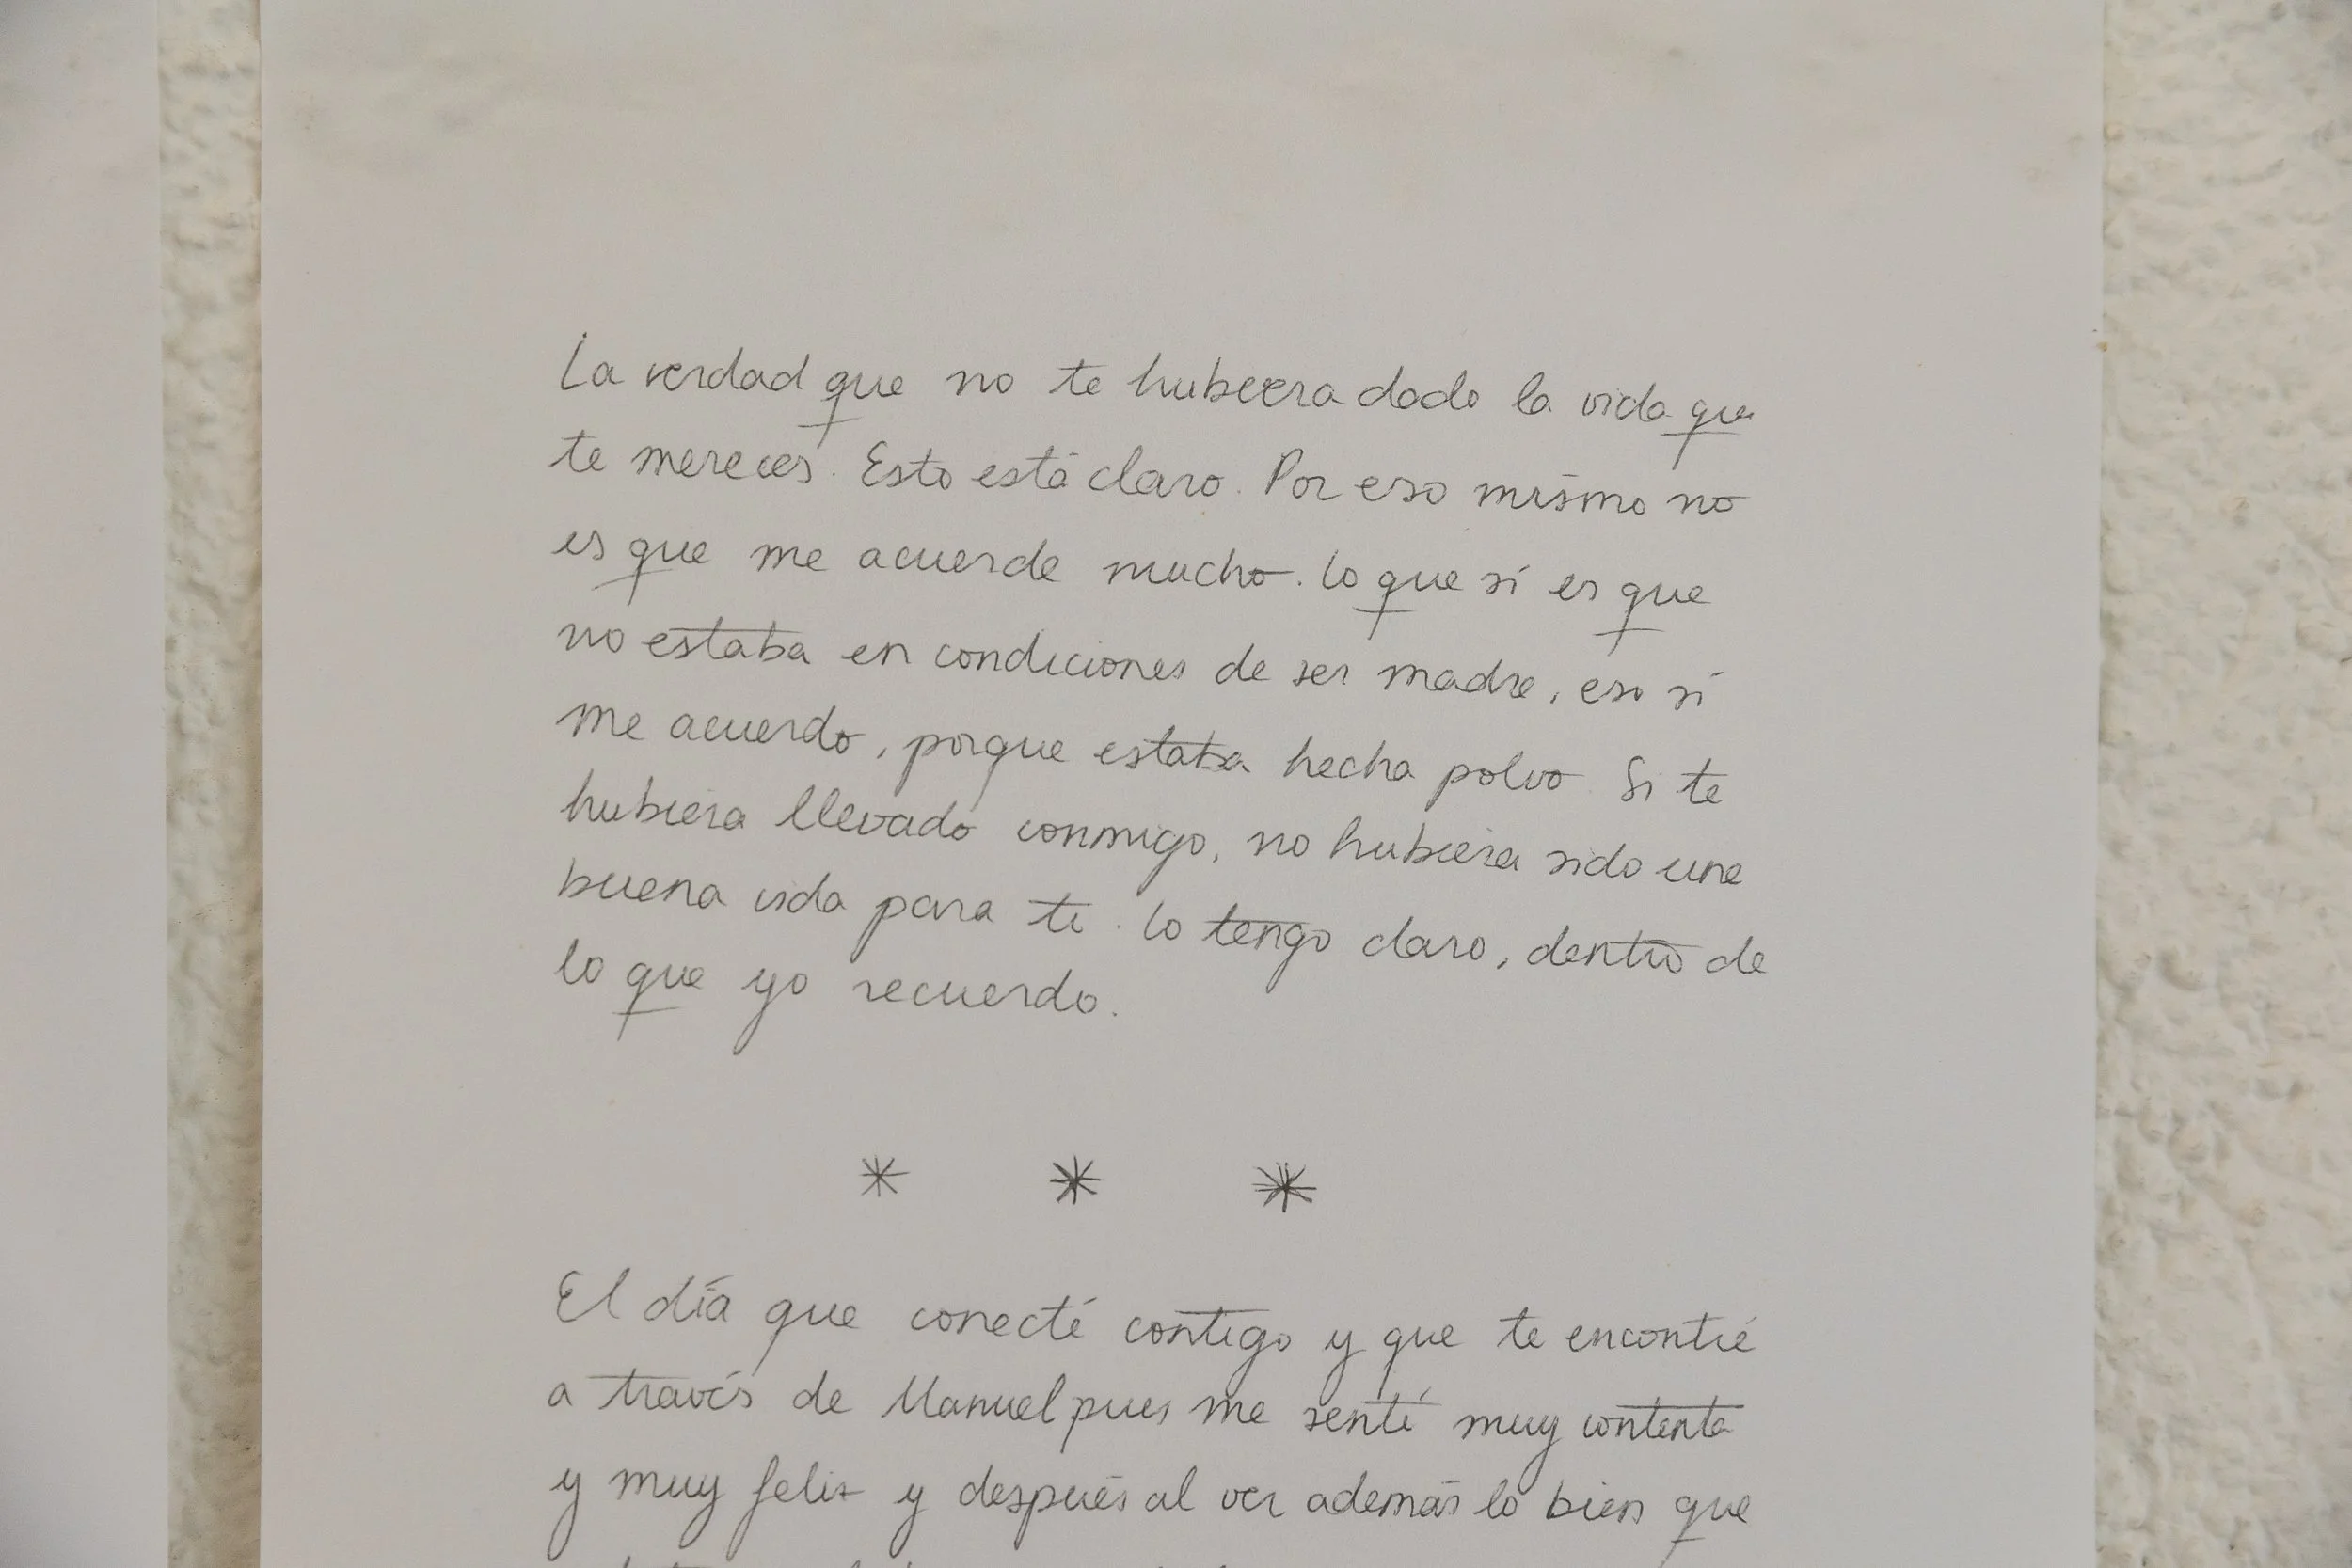 La verdad que no te hubiera dado la vida que
te mereces. Esto está claro. Por eso mismo no
es que me acuerde mucho. Lo que sí es que
no estaba en condiciones de ser madre, eso sí
me acuerdo, porque estaba hecha polvo. Si te
hubiera llevado conmigo, no hubiera sido una
buena vida para ti. Lo tengo claro, dentro de
lo que yo recuerdo.
* * *
El día que conecté contigo y que te encontré
a través de Manuel pues me sentí muy contenta
y muy feliz y después al ver además lo bien que